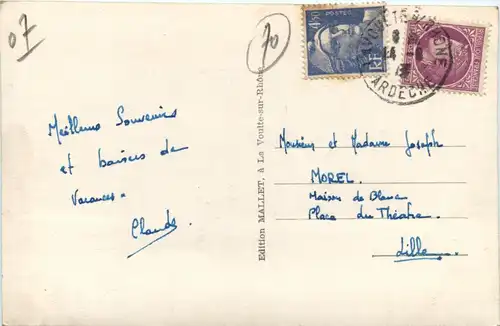 07
70
4F50
POSTES
RF
ARDECHE
Meilleurs Souvenirs
et baisers de
Vacances.
Claude
Edition MALLET, à La Voulte-sur-Rhône
Monsieur et Madame Joseph
MOREL.
Maison de Blanc
Place du Théatre.
Lille.